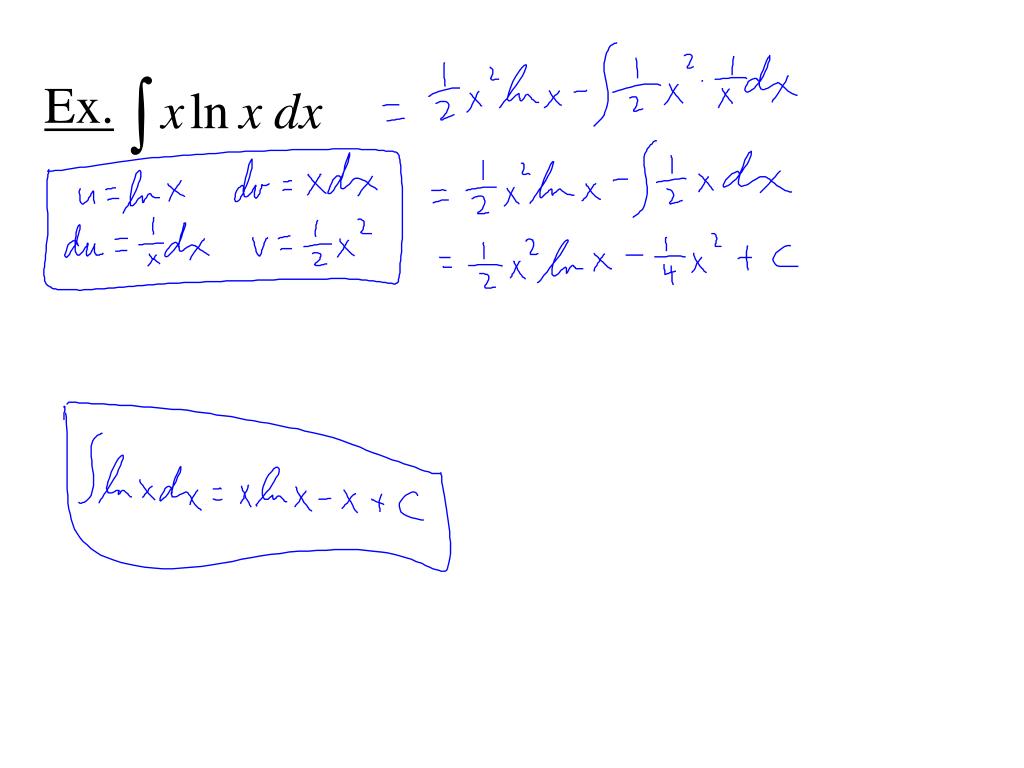 Ex. ∫ x ln x dx = 1/2 x² ln x − ∫ 1/2 x² · 1/x dx
u = ln x dv = x dx
du = 1/x dx v = 1/2 x²
= 1/2 x² ln x − ∫ 1/2 x dx
= 1/2 x² ln x − 1/4 x² + C
∫ ln x dx = x ln x − x + C